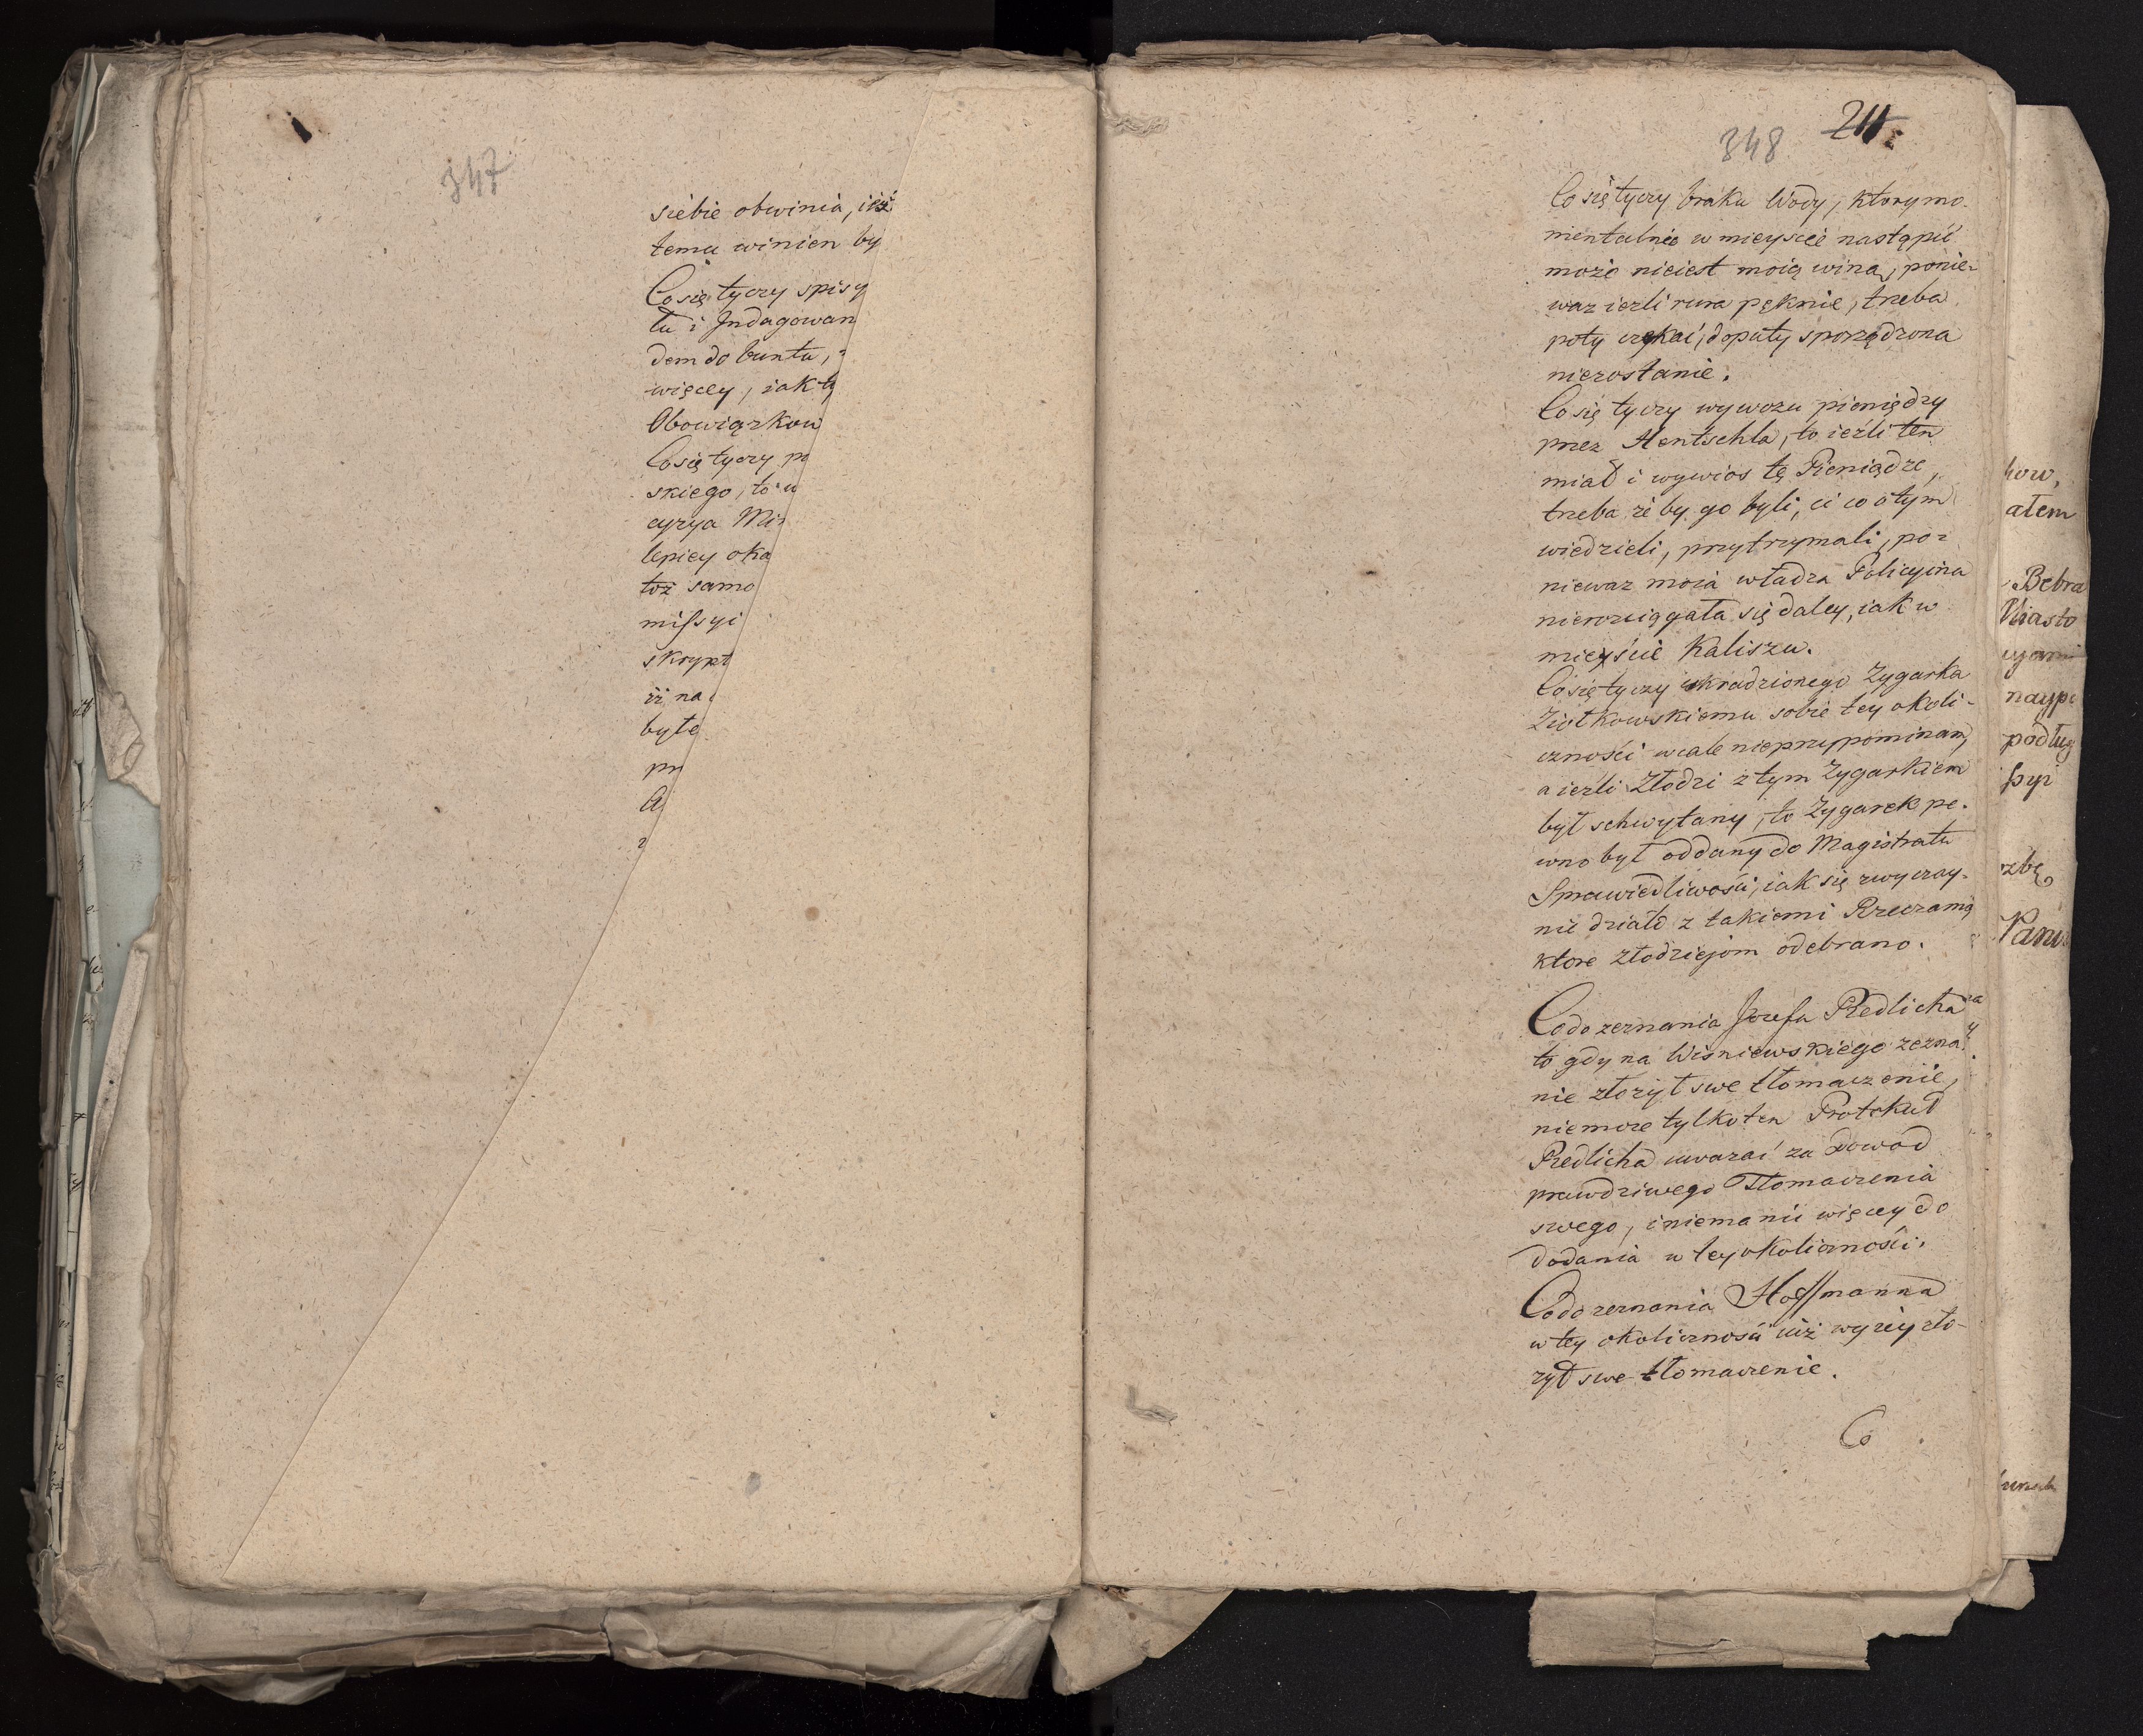 347
siebie obwinia, iż
temu winien by
Co się tyczy spisy
tu i Indagowan
dem do buntu,
więcey, iak t
Obowiązkow
Co się tyczy p
skiego, to
cyrya Mi
lepiey oka
toż samo
missyi
skrypt
iż na
byłe
pr
A
348 211
Co się tyczy braku Wody, ktory mo-
mentalnie w mieyscie nastąpić
może nieiest moią winą, ponie-
waz ieżli rura pęknie, trzeba
poty czekać, doputy sporządzona
niezostanie.
Co się tyczy wywozu pieniędzy
przez Hentschla, to ieźli ten
miał i wywios tę Pieniądze,
trzeba żeby go byli, ci co o tym
wiedzieli, przytrzymali, po-
niewaz moia władza Policyina
nierozciągała się daley, iak w
mieyście Kaliszu.
Co się tyczy ukradzionego Zygarka
Ziołkowskiemu sobie tey okoli-
czności wcale nieprzypominam,
a ieżli Złodzi z tym Zygarkiem
był schwytany, to Zygarek pe-
wno był oddany do Magistratu
Sprawiedliwości, iak się zwyczay-
nie działo z takiemi Rzeczamy
ktore złodziejom odebrano.
Co do zeznania Jozefa Redlicha
to gdy na Wiśniewskiego zezna-
nie złożył swe tłomaczenie,
niemoze tylko ten Protokuł
Redlicha uwazać za dowod
prawdziwego Tłomaczenia
swego, i niema nic więcey do
dodania w tey okoliczności.
Co do zeznania Hoffmanna
w tey okoliczności iuż wyżey zło-
żył swe tłomaczenie.
Co
kow,
ałem
Bebra
Miasto
naypi
podług
ssyi
zbę
Panu